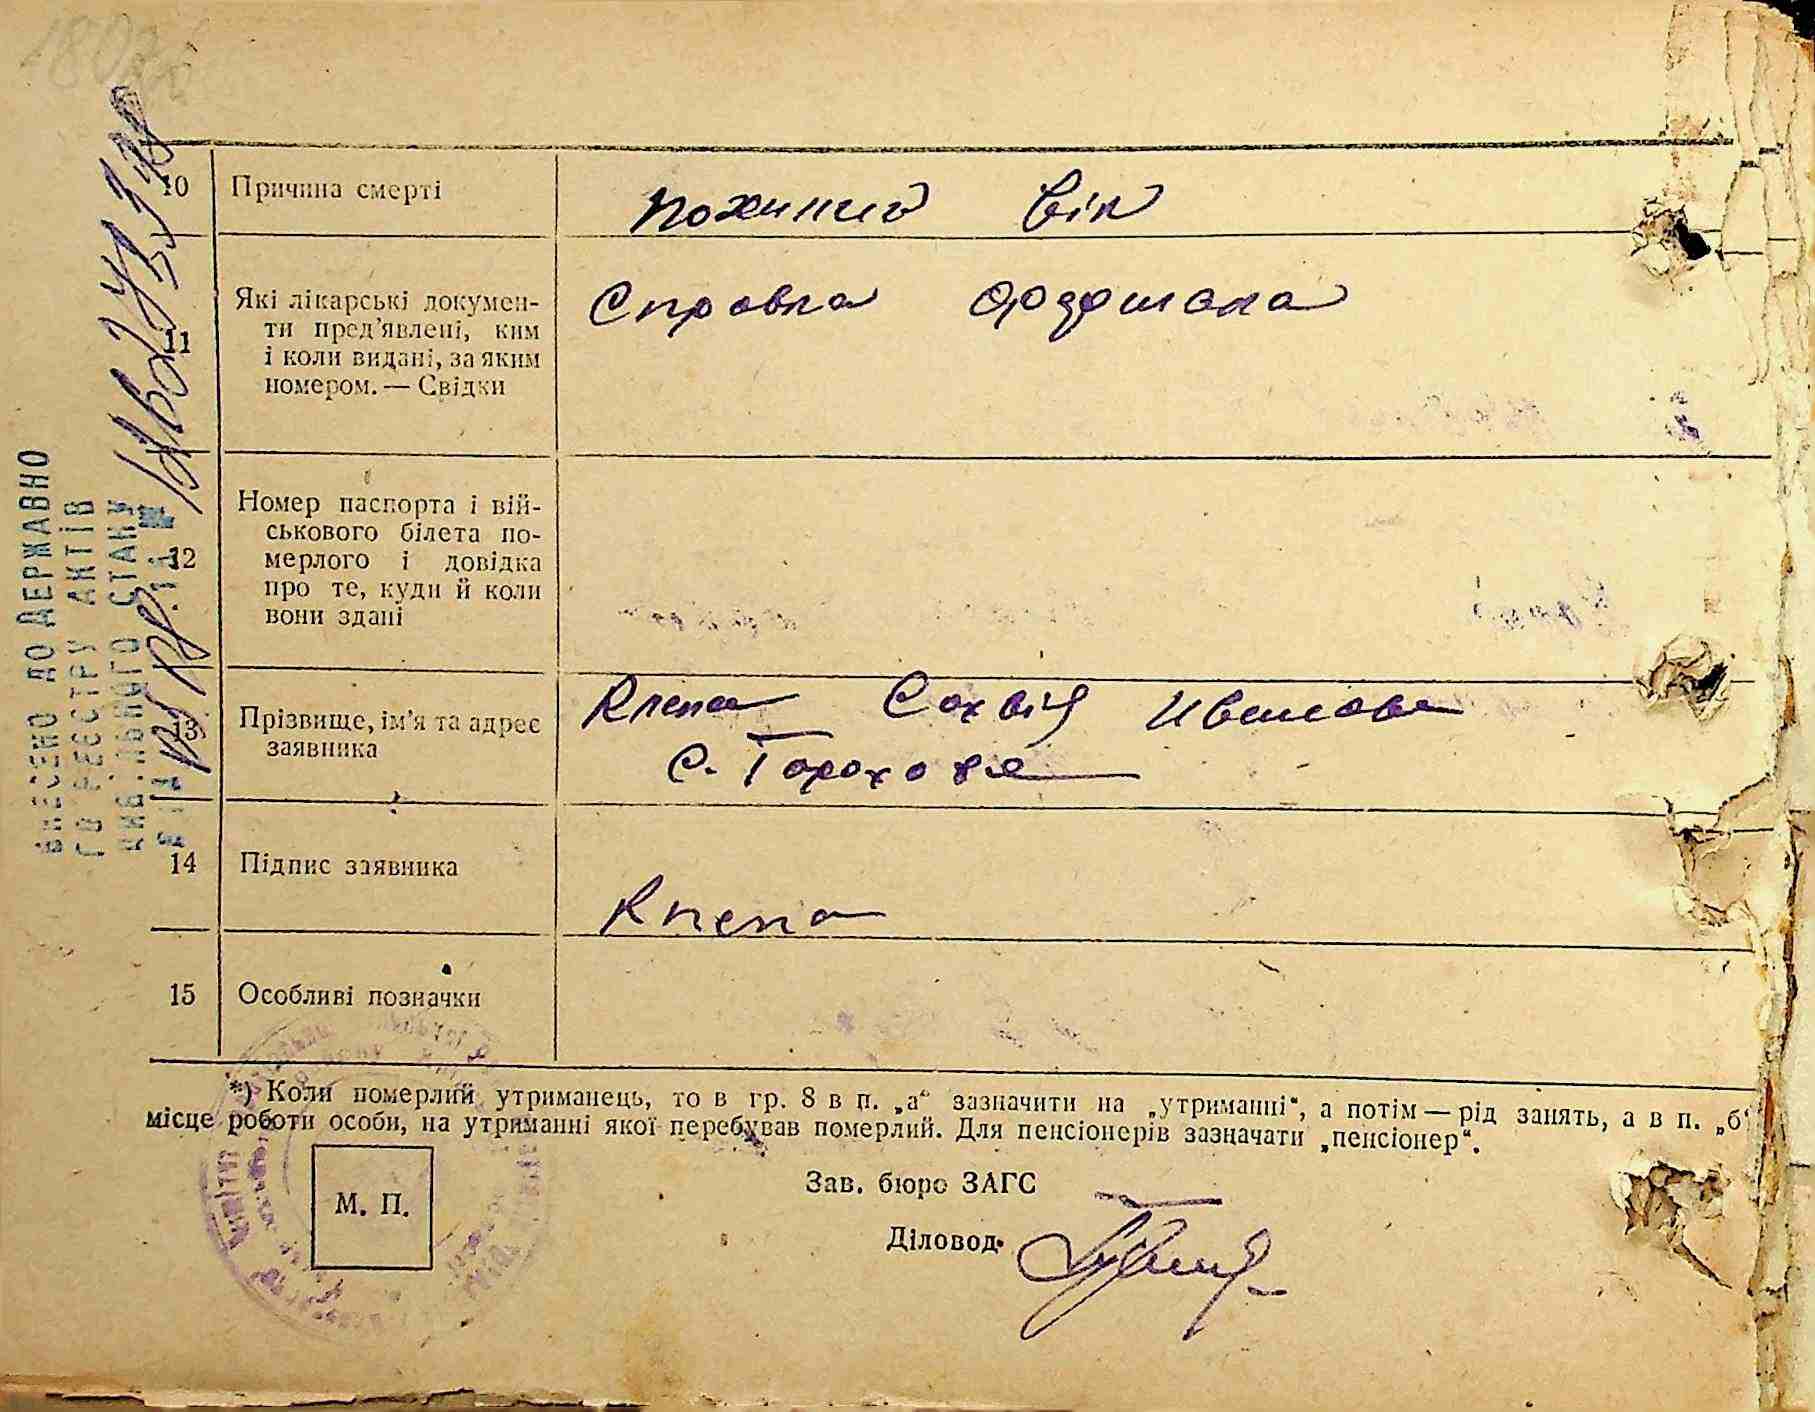 10 Причина смерті
похилий вік
Які лікарські докумен-
ти пред’явлені, ким
11 і коли видані, за яким
номером. — Свідки
Справка
Номер паспорта і вій-
ськового білета по-
12 мерлого і довідка
про те, куди й коли
вони здані
13 Прізвище, ім’я та адрес
заявника
Клепа Сохвія Ивановна
с.
14 Підпис заявника
Клепа
15 Особливі позначки
*) Коли померлий утриманець, то в гр. 8 в п. „а“ зазначити на „утриманні“, а потім — рід занять, а в п. „б“
місце роботи особи, на утриманні якої перебував померлий. Для пенсіонерів зазначати „пенсіонер“.
М. П.
Зав. бюро ЗАГС
Діловод
ВНЕСЕНО ДО ДЕРЖАВНО
ГО РЕЄСТРУ АКТІВ
ЦИВІЛЬНОГО СТАНУ